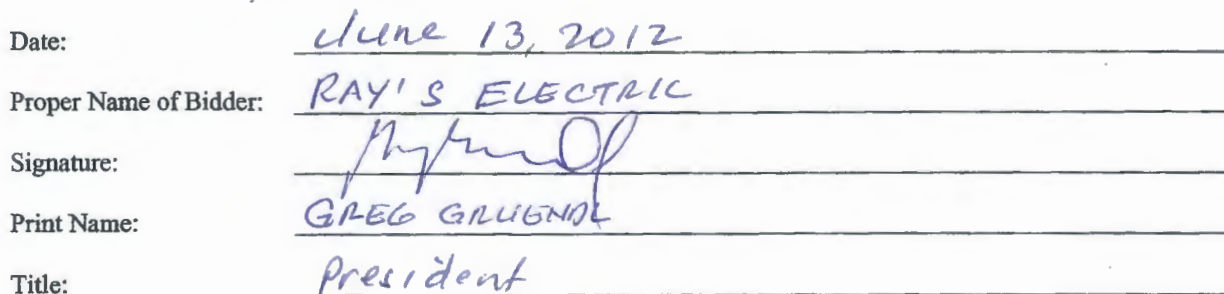 Date: June 13, 2012
Proper Name of Bidder: RAY'S ELECTRIC
Signature:
Print Name: GREG GRUENDL
Title: President